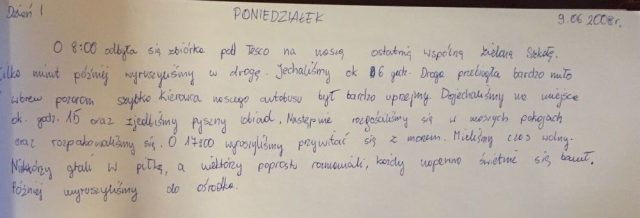 Dzień 1 PONIEDZIAŁEK 9.06 2008r.
O 8:00 odbyła się zbiórka pod Tesco na naszą ostatnią wspólną Zieloną Szkołę.
Kilka minut później wyruszyliśmy w drogę. Jechaliśmy ok 6 godz. Droga przebiegła bardzo miło
i wbrew pozorom szybko. Kierowca naszego autobusu był bardzo uprzejmy. Dojechaliśmy na miejsce
ok. godz. 15 oraz zjedliśmy pyszny obiad. Następnie rozgościliśmy się w naszych pokojach
oraz rozpakowaliśmy się. O 17:00 wyruszyliśmy przywitać się z morzem. Mieliśmy czas wolny.
Niektórzy grali w piłkę, a niektórzy poprostu rozmawiali, każdy napewno świetnie się bawił.
Później wyruszyliśmy do ośrodka.